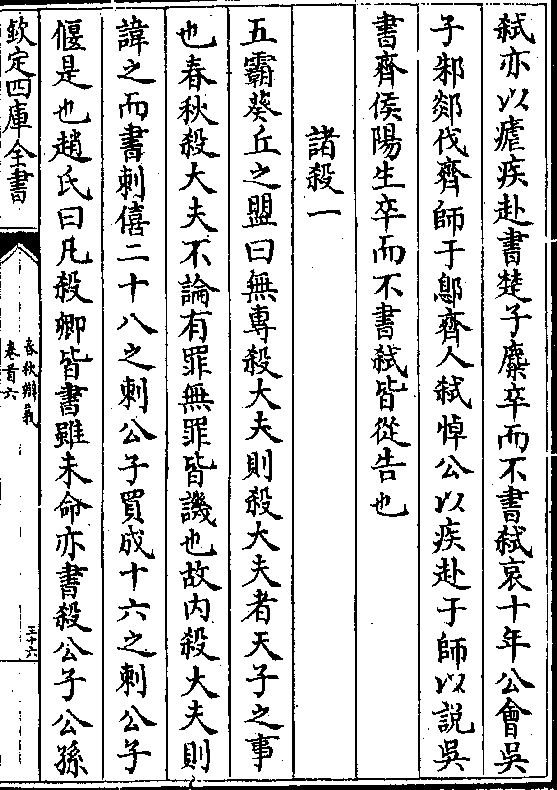 弑亦以瘧疾赴書楚子麇卒而不書弑哀十年公會吳
子邾郯伐齊師于鄎齊人弑悼公以疾赴于師以說吳
書齊侯陽生卒而不書弑皆從告也
諸殺一
五霸葵丘之盟曰無專殺大夫則殺大夫者天子之事
也春秋殺大夫不論有罪無罪皆譏也故内殺大夫則
諱之而書刺僖二十八之刺公子買成十六之刺公子
偃是也趙氏曰凡殺卿皆書雖未命亦書殺公子公孫
欽定四庫全書
春秋辯義
卷首六
三十六